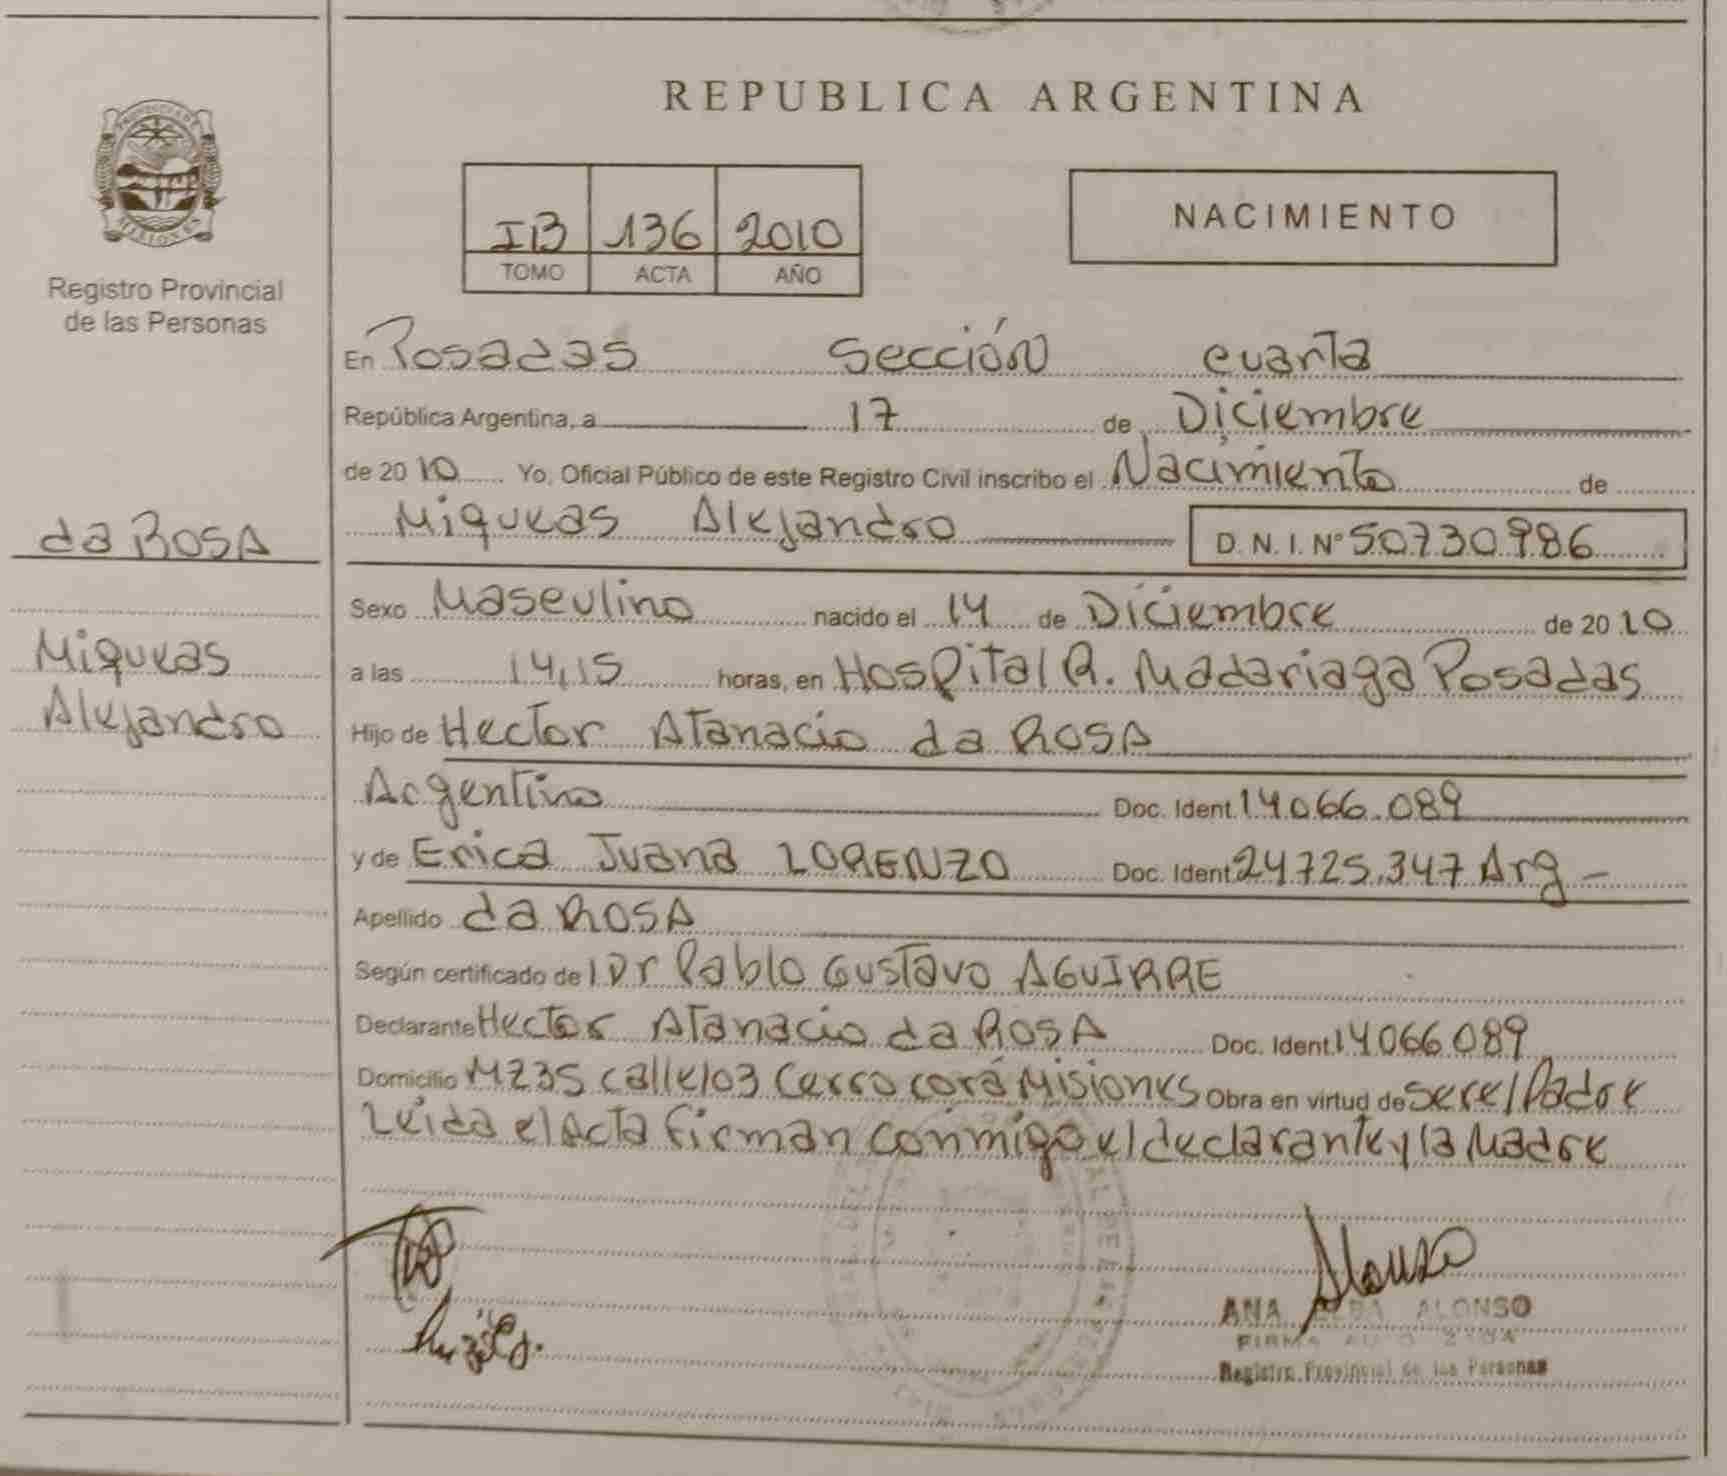 REPUBLICA ARGENTINA
PROVINCIA DE
MISIONES
Registro Provincial
de las Personas
IB 136 2010
TOMO ACTA AÑO
NACIMIENTO
da ROSA
Miqueas
Alejandro
En Posadas sección cuarta
República Argentina, a 17 de Diciembre
de 2010 Yo, Oficial Público de este Registro Civil inscribo el Nacimiento de
Miqueas Alejandro D. N. I. Nº 50730986
Sexo Masculino nacido el 14 de Diciembre de 2010
a las 14,15 horas, en Hospital R. Madariaga Posadas
Hijo de Hector Atanacio da ROSA
Argentino Doc. Ident. 14.066.089
y de Erica Juana LORENZO Doc. Ident. 24.725.347 Arg -
Apellido da ROSA
Según certificado de l Dr Pablo Gustavo AGUIRRE
Declarante Hector Atanacio da ROSA Doc. Ident. 14066089
Domicilio MZ35 calle 103 Cerro corá Misiones Obra en virtud de ser el Padre
Leida el Acta firman conmigo el declarante y la Madre
ANA ELBA ALONSO
FIRMA
Registro Provincial de las Personas